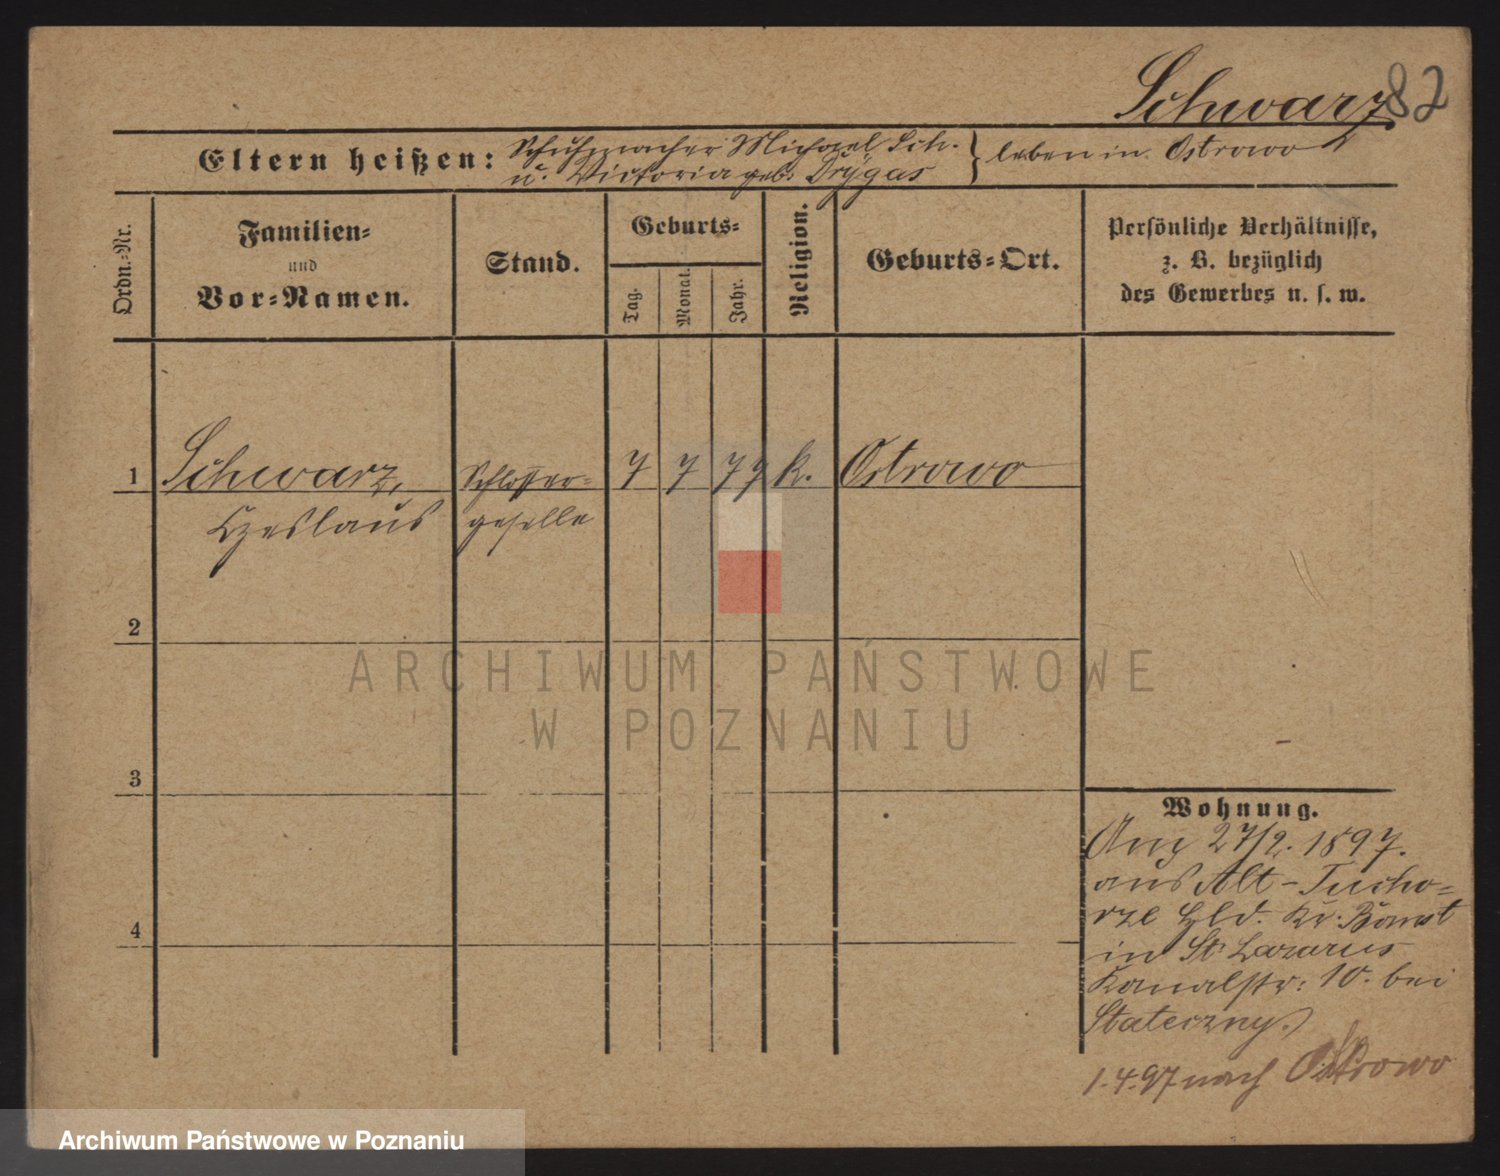 Schwarz 82
Eltern heißen: Schuhmacher Michael Sch.
u. Victoria geb. Drÿgas } leben in Ostrowo
Ordn.-Nr.
Familien-
und
Vor-Namen.
Stand.
Geburts-
Tag.
Monat.
Jahr.
Religion.
Geburts-Ort.
Persönliche Verhältnisse,
z. B. bezüglich
des Gewerbes u. s. w.
1 Schwarz, Schlosser- 7 7 79 k. Ostrowo
Czeslaus geselle
2
3
4
Wohnung.
Anz 27/2. 1897.
aus Alt-Tucho-
rze Hld. Kr. Bomst
in St. Lazarus
Kanalstr: 10. bei
Stateczny.
1.4.97 nach Ostrowo
ARCHIWUM PAŃSTWOWE
W POZNANIU
Archiwum Państwowe w Poznaniu